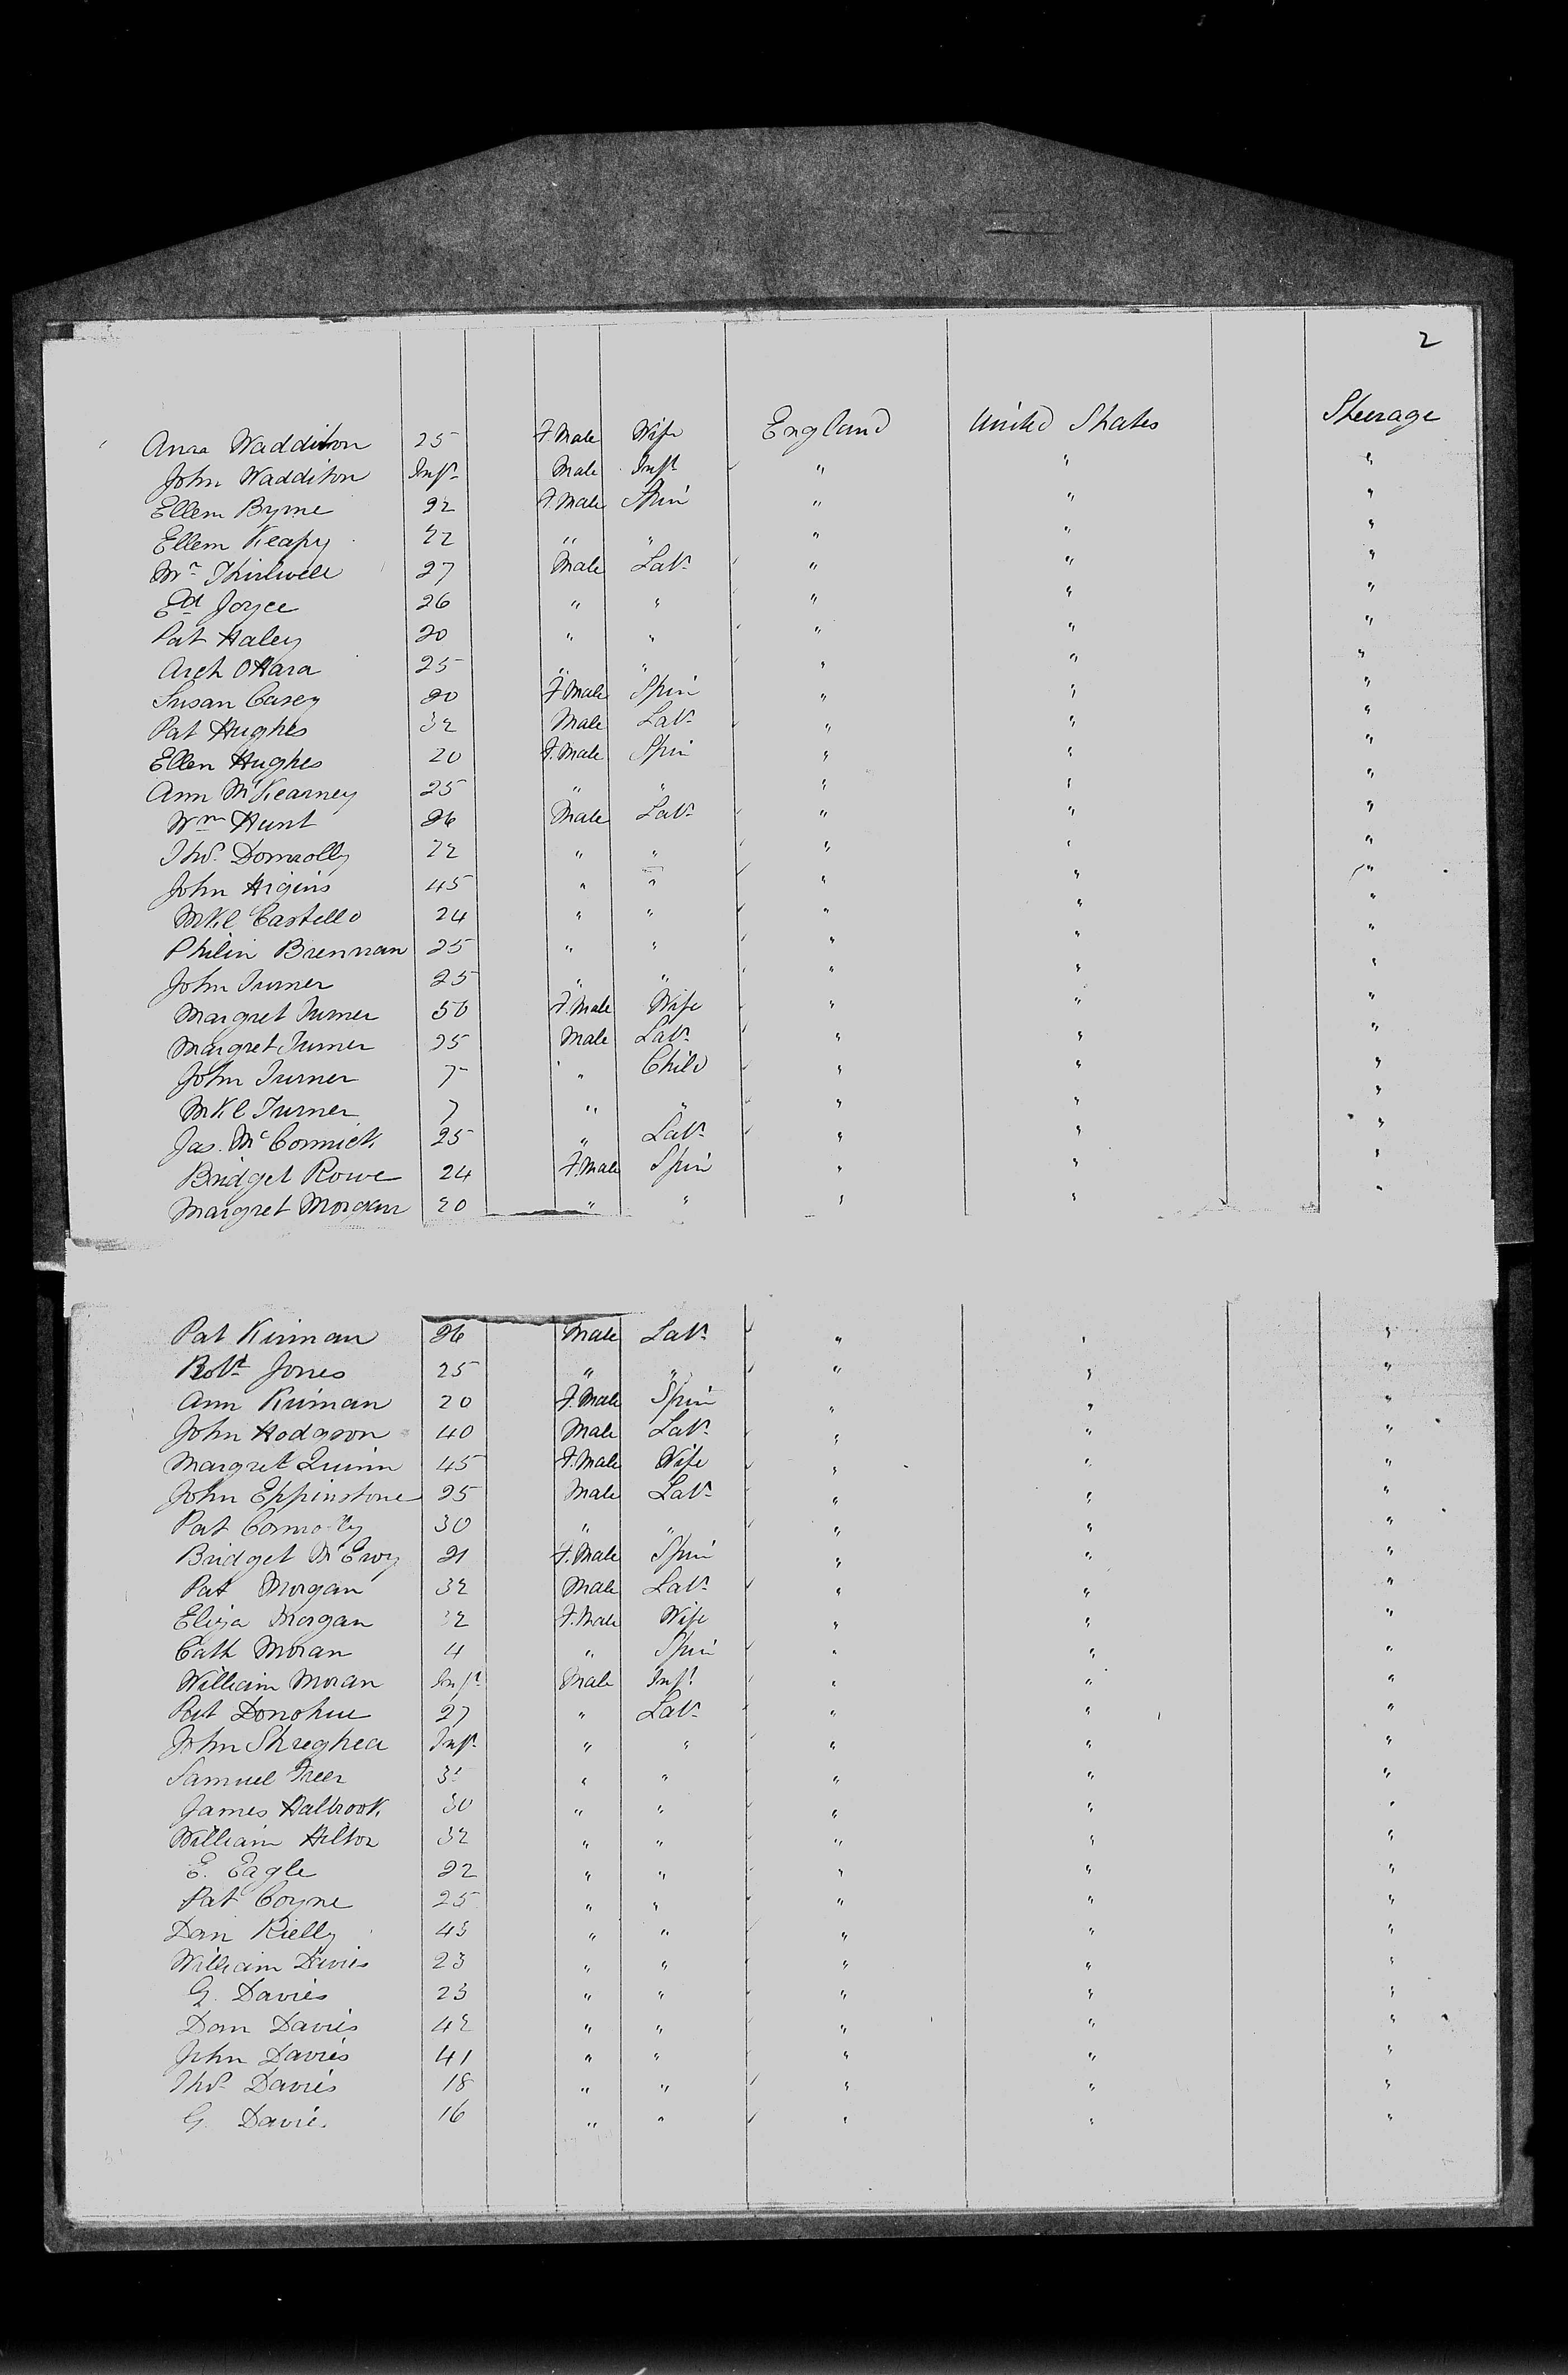 2
Anna Waddilton 25 F.Male Wife England United States Steerage
John Waddilton Inft Male Inft " " "
Ellem Byrne 22 F.Male Spin " " "
Ellem Keapy 22 " " " " "
Mr Thirlwell 27 Male Labr " " "
Ed Joyce 26 " " " " "
Pat Haley 20 " " " " "
Arch OHara 25 " " " " "
Susan Casey 20 F.Male Spin " " "
Pat Hughes 32 Male Labr " " "
Ellen Hughes 20 F.Male Spin " " "
Ann McKearney 25 " " " " "
Wm Hunt 26 Male Labr " " "
Thos. Donnolly 22 " " " " "
John Higins 45 " " " " "
Mkl Castello 24 " " " " "
Philin Brennan 25 " " " " "
John Turner 25 " " " " "
Margret Turner 50 F.Male Wife " " "
Margret Turner 25 Male Labr " " "
John Turner 7 " Child " " "
Mkl Turner 7 " " " " "
Jas. McCormick 25 " Labr " " "
Bridget Rowe 24 F.Male Spin " " "
Margret Morgan 20 " " " " "
Pat Kirnan 26 Male Labr " " "
Robt Jones 25 " " " " "
Ann Kirnan 20 F.Male Spin " " "
John Hodgson 40 Male Labr " " "
Margret Quinn 45 F.Male Wife " " "
John Eppinstone 25 Male Labr " " "
Pat Connolly 30 " " " " "
Bridget McEvoy 21 F.Male Spin " " "
Pat Morgan 32 Male Labr " " "
Eliza Morgan 32 F.Male Wife " " "
Cath Moran 4 " Spin " " "
William Moran Inft Male Inft " " "
Pat Donohue 27 " Labr " " "
John Shreghea Inft " " " " "
Samuel Freer " " " " "
James Halbrook 30 " " " " "
William Hilton 32 " " " " "
E. Eagle 22 " " " " "
Pat Coyne 25 " " " " "
Dan Rielly 43 " " " " "
William Davies 23 " " " " "
G. Davies 23 " " " " "
Dom Davies 42 " " " " "
John Davies 41 " " " " "
Thos. Davies 18 " " " " "
G. Davies 16 " " " " "